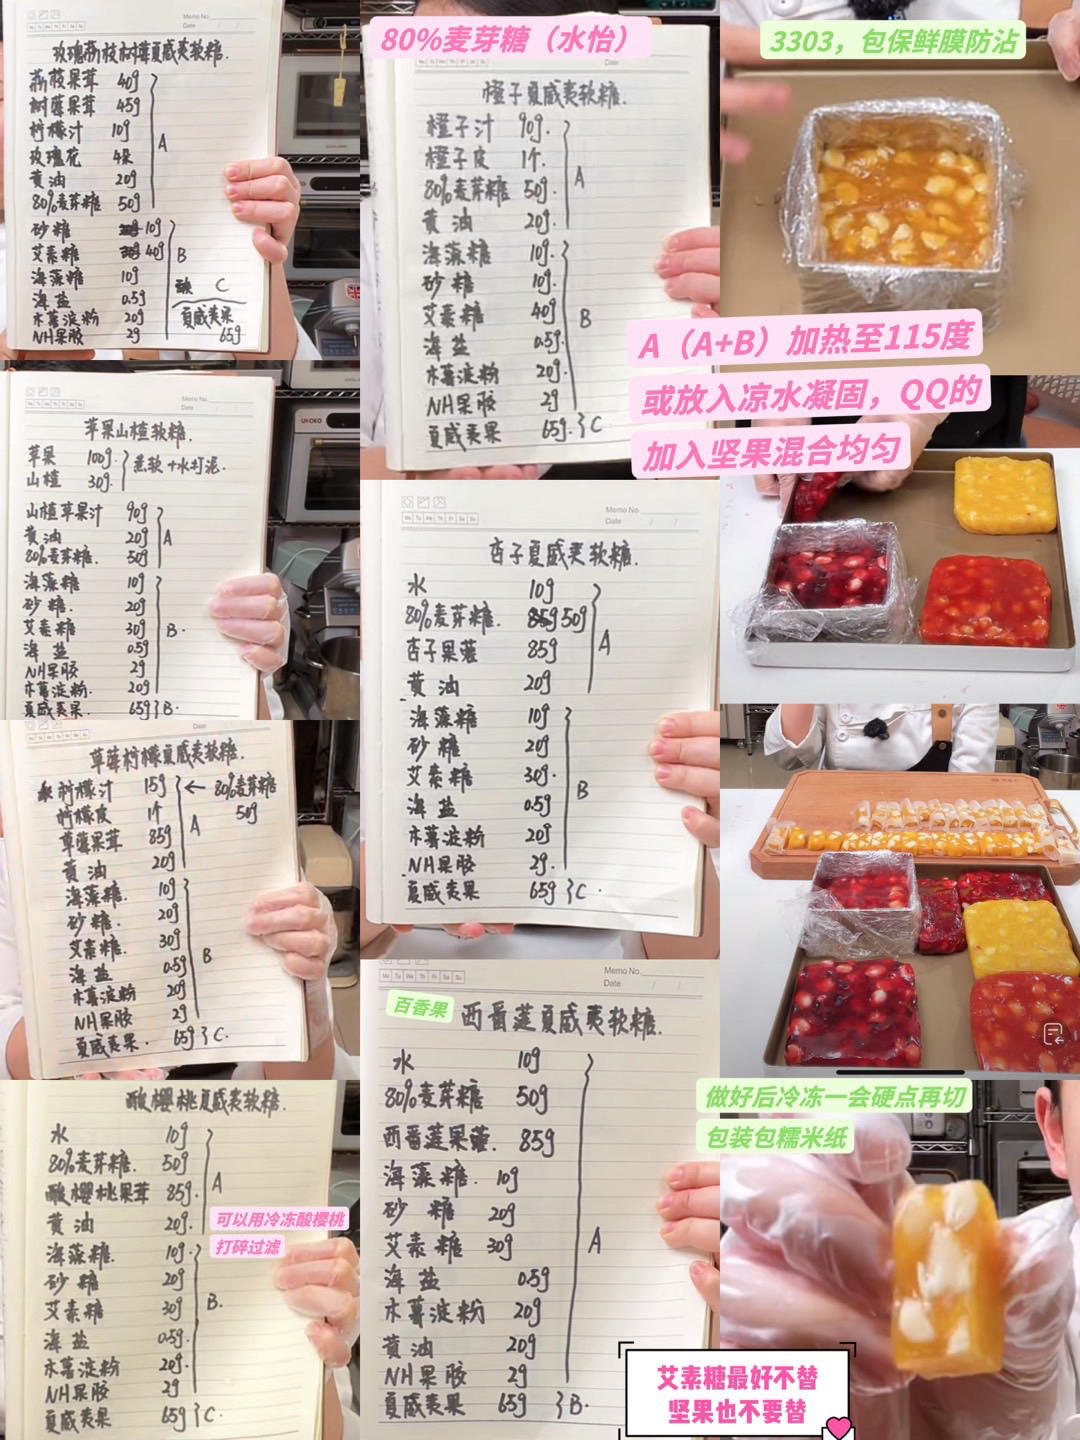 Memo No.
Date
玫瑰荔枝树莓夏威夷软糖.
荔枝果茸 40g
树莓果茸 45g
柠檬汁 10g
玫瑰花 4朵
黄油 20g
80%麦芽糖 50g
A
砂糖 10g
艾素糖 40g
海藻糖 10g
海盐 0.5g
木薯淀粉 20g
NH果胶 2g
B
C
夏威夷果
65g
80%麦芽糖（水怡）
Date
橙子夏威夷软糖.
橙子汁 90g.
橙子皮 1个.
80%麦芽糖 50g.
黄油 20g.
A
海藻糖 10g.
砂糖 10g.
艾素糖 40g
海盐 0.5g.
木薯淀粉 20g.
NH果胶 2g
B
夏威夷果 65g. C
3303，包保鲜膜防沾
A（A+B）加热至115度
或放入凉水凝固，QQ的
加入坚果混合均匀
Memo No.
Date
苹果山楂软糖.
苹果 100g.
山楂 30g.
蒸软+水打泥.
山楂苹果汁 90g
黄油 20g
80%麦芽糖. 50g
A
海藻糖 10g
砂糖. 20g
艾素糖 30g
海盐 0.5g
NH果胶 2g
木薯淀粉. 20g
B.
夏威夷果. 65g B.
UKOEO
Memo No.
Date
杏子夏威夷软糖.
水 10g
80%麦芽糖. 50g
杏子果蓉 85g
黄油 20g
A
海藻糖 10g
砂糖 20g
艾素糖 30g.
海盐 0.5g
木薯淀粉 20g
NH果胶 2g.
B
夏威夷果 65g C.
Date
草莓柠檬夏威夷软糖.
柠檬汁 15g ← 80%麦芽糖
50g
柠檬皮 1个
草莓果茸 85g
黄油 20g
A
海藻糖. 10g
砂糖. 20g
艾素糖. 30g
海盐 0.5g
木薯淀粉 20g
NH果胶 2g
B
夏威夷果. 65g C.
酸樱桃夏威夷软糖.
水 10g
80%麦芽糖. 50g
酸樱桃果茸 85g.
黄油 20g.
A
可以用冷冻酸樱桃
打碎过滤
海藻糖. 10g.
砂糖 20g
艾素糖 30g
海盐 0.5g.
木薯淀粉 20g.
NH果胶 2g
B.
夏威夷果 65g C.
Memo No.
Date
百香果
西番莲夏威夷软糖.
水 10g
80%麦芽糖 50g
西番莲果蓉. 85g
海藻糖. 10g
砂糖 20g
艾素糖 30g
海盐 0.5g
木薯淀粉 20g
黄油 20g
NH果胶 2g
A
夏威夷果 65g B.
做好后冷冻一会硬点再切
包装包糯米纸
艾素糖最好不替
坚果也不要替